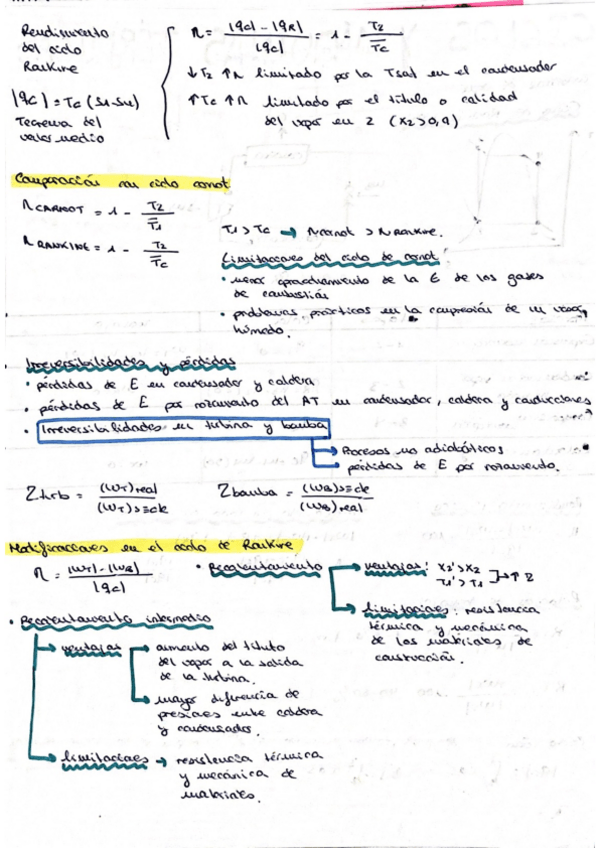 Rendimiento
del ciclo
Rankine
|qc| = Tc (s1-s4)
Teorema del
valor medio
η = |qc| - |qR| / |qc| = 1 - T2 / T̄c
↓T2 ↑η limitado por la Tsat en el condensador
↑Tc ↑η limitado por el título o calidad
del vapor en 2 (x2>0,9)
Comparación con ciclo carnot
η CARNOT = 1 - T2 / T̄1
η RANKINE = 1 - T2 / T̄c
T1 > Tc → ηcarnot > ηRankine.
Limitaciones del ciclo de carnot
• menor aprovechamiento de la E de los gases
de combustión
• problemas prácticos en la compresión de un vapor
húmedo.
Irreversibilidades y pérdidas
• pérdidas de E en condensador y caldera
• pérdidas de E por rozamiento del AT en condensador, caldera y conducciones
• Irreversibilidades en turbina y bomba
Procesos no adiabáticos
pérdidas de E por rozamiento.
Zturb = (WT)real / (WT)s=cte
Zbomba = (WB)s=cte / (WB)real
Modificaciones en el ciclo de Rankine
η = |WT| - |WB| / |qc|
• Recalentamiento
ventajas: x2'>x2
T1'>T1 → ↑η
limitaciones: resistencia
térmica y mecánica
de los materiales de
construcción.
• Recalentamiento intermedio
ventajas → aumento del título
del vapor a la salida
de la turbina.
mayor diferencia de
presiones entre caldera
y condensador.
limitaciones → resistencia térmica
y mecánica de
materiales.